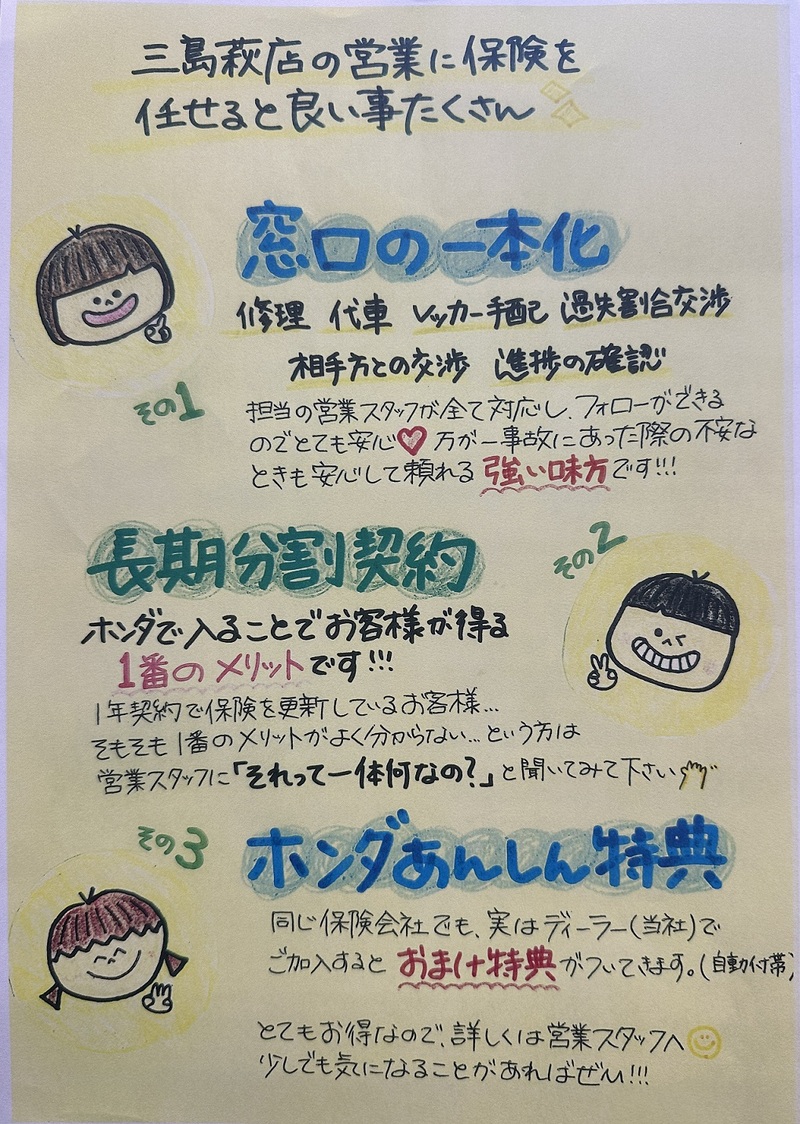 三島萩店の営業に保険を
任せると良い事たくさん
窓口の一本化
修理 代車 レッカー手配 過失割合交渉
相手方との交渉 進捗の確認
その1
担当の営業スタッフが全て対応し、フォローができる
のでとても安心♡ 万が一事故にあった際の不安な
ときも安心して頼れる 強い味方です!!!
その2
長期分割契約
ホンダで入ることでお客様が得る
1番のメリットです!!!
1年契約で保険を更新しているお客様...
そもそも1番のメリットがよく分からない...という方は
営業スタッフに「それって一体何なの?」と聞いてみて下さい
その3
ホンダあんしん特典
同じ保険会社でも、実はディーラー(当社)で
ご加入すると おまけ特典 がついてきます。(自動付帯)
とてもお得なので、詳しくは営業スタッフへ
少しでも気になることがあればぜひ!!!